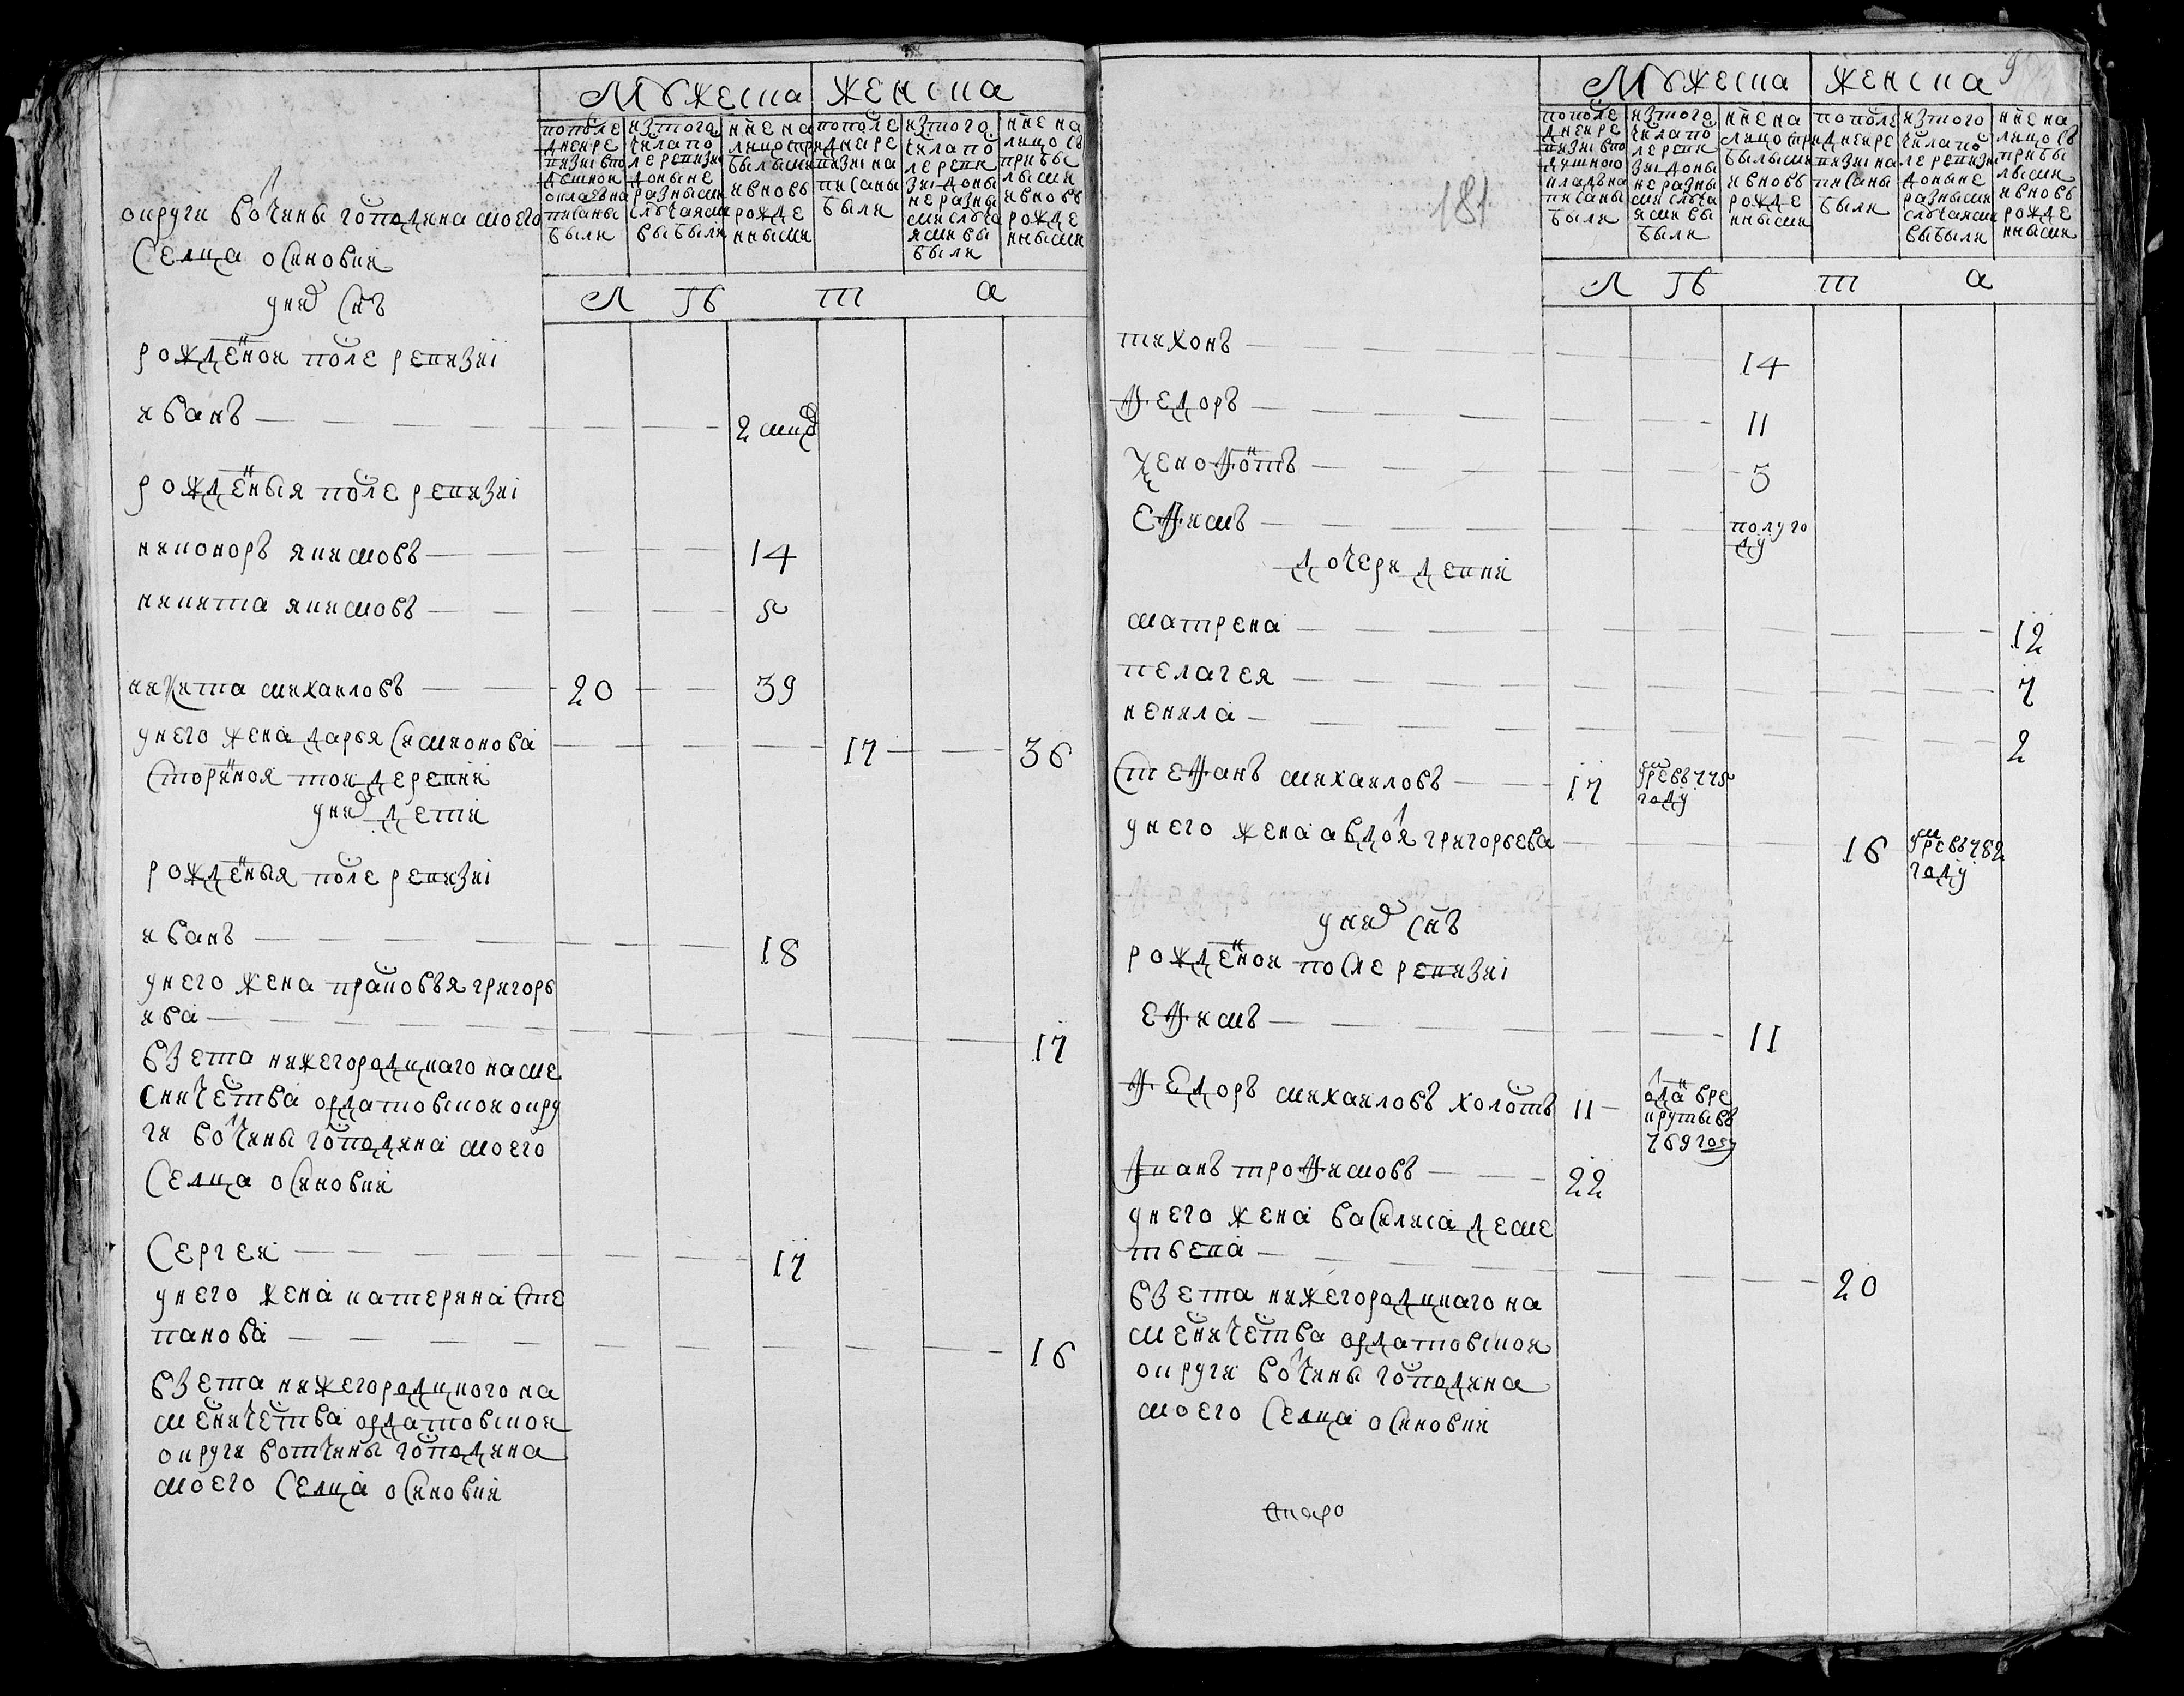 Мужеска
женска
по после
дней ре
визиі в по
душной
оклад на
писаны
были
из того
числа по
сле ревизиі
до ныне
разными
случаями
выбыли
нне на
лицо при
былыми
и вновь
рожде
нными
по посл
дней ре
визиі на
писаны
были
из того
числа по
сле реви
зиі до ны
не разны
ми случа
ями вы
были
нне на
лицо съ
прибы
лыми
и вновь
рожде
нными
Л Ѣ т а
округи вотчины гос̾подина моего
селца осиновки
у них снъ
рожденой после ревизиі
иванъ 2 мцъ
рожденыя после ревизиі
никоноръ якимовъ 14
никита якимовъ 5
никита михаиловъ 20 39
у него жена дарья симионова 17 36
стариноя той деревни
у них дети
рожденыя после ревизиі
иванъ 18
у него жена прасковья григорь
ива 17
взета нижегородцкаго наме
сничества ордатовской окру
ги вотчины господина моего
селца осиновки
сергей 17
у него жена катерина сте
панова 16
взета нижегородцкого на
месничества ордатовской
округи вотчины господина
моего селца осиновки
9
181
Мужеска
женска
по после
дней ре
визиі в по
душного
окладъ на
писаны
были
из того
числа по
сле реви
зиі до ны
не разны
ми случа
ями вы
были
нне на
лицо при
былыми
и вновь
рожде
нными
по посл
дней ре
визиі на
писаны
были
из того
числа по
сле ревизиі
до ныне
разными
случаями
выбыли
нне на
лицо съ
прибы
лыми
и вновь
рожде
нными
Л Ѣ т а
тихонъ 14
федоръ 11
ксенофонтъ 5
ефимъ полуго
ду
дочери девки
матрена 12
пелагея 7
ненила 2
стефанъ михаиловъ 17 умре въ 775
году
у него жена авдотья григорьева 16 умре въ 782
году
у них снъ
рожденой после ревизиі
ефимъ 11
федоръ михаиловъ холостъ 11 отдан в ре
круты въ
769 году
фианъ трофимовъ 22
у него жена василиса деме
тьева 20
взета нижегородцкаго на
месничества ордатовской
округи вотчины господина
моего селца осиновки